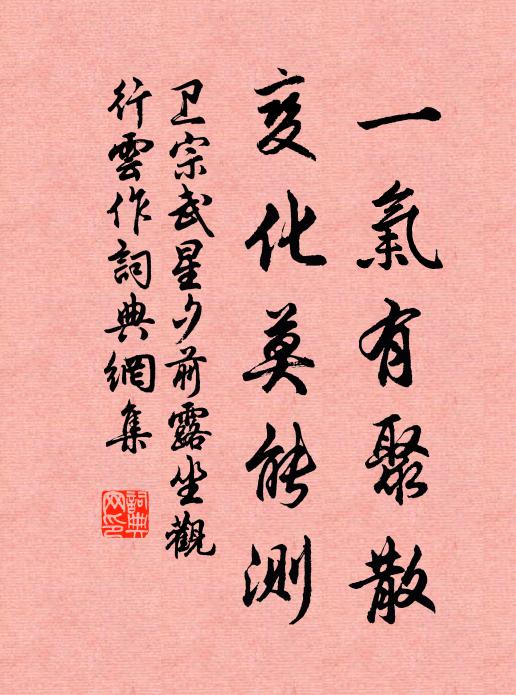 一氣有聚散
变化莫能測
卫宗武星夕前露坐觀
行雲作詞典網集
詞典
网印